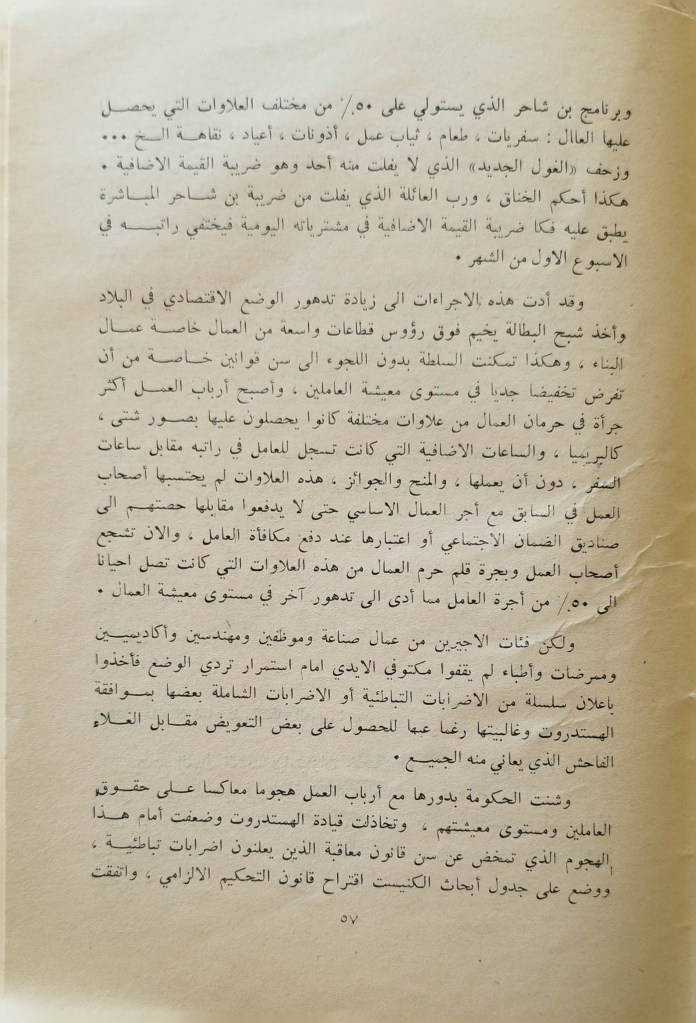 وبرنامج بن شاحر الذي يستولي على ٥٠٪ من مختلف العلاوات التي يحصل
عليها العاال : سفريات ، طعام ، ثياب عمل ، أذونات ، أعياد ، نقاهة الخ ...
وزحف «الغول الجديد» الذي لا يفلت منه أحد وهو ضريبة القيمة الاضافية .
هكذا أحكم الخناق ، ورب العائلة الذي يفلت من ضريبة بن شاحر المباشرة
يطبق عليه فكا ضريبة القيمة الاضافية في مشترياته اليومية فيختفي راتبه في
الاسبوع الاول من الشهر .
وقد أدت هذه الاجراءات الى زيادة تدهور الوضع الاقتصادي في البلاد
وأخذ شبح البطالة يخيم فوق رؤوس قطاعات واسعة من العمال خاصة عمال
البناء ، وهكذا تمكنت السلطة بدون اللجوء الى سن قوانين خاصة من أن
تفرض تخفيضا جديا في مستوى معيشة العاملين ، وأصبح أرباب العمل أكثر
جرأة في حرمان العمال من علاوات مختلفة كانوا يحصلون عليها بصور شتى ،
كالبريميا ، والساعات الاضافية التي كانت تسجل للعامل في راتبه مقابل ساعات
السفر ، دون أن يعملها ، والمنح والجوائز ، هذه العلاوات لم يحتسبها أصحاب
العمل في السابق مع أجر العمال الاساسي حتى لا يدفعوا مقابلها حصتهم الى
صناديق الضمان الاجتماعي أو اعتبارها عند دفع مكافأة العامل ، والان تشجع
أصحاب العمل وبجرة قلم حرم العمال من هذه العلاوات التي كانت تصل احيانا
الى ٥٠٪ من أجرة العامل مما أدى الى تدهور آخر في مستوى معيشة العمال .
ولكن فئات الاجيرين من عمال صناعة وموظفين ومهندسين وأكاديميين
وممرضات وأطباء لم يقفوا مكتوفي الايدي امام استمرار تردي الوضع فأخذوا
باعلان سلسلة من الاضرابات التباطئية أو الاضرابات الشاملة بعضها بموافقة
الهستدروت وغالبيتها رغما عبها للحصول على بعض التعويض مقابل الغلاء
الفاحش الذي يعاني منه الجميع .
وشنت الحكومة بدورها مع أرباب العمل هجوما معاكسا على حقوق
العاملين ومستوى معيشتهم ، وتخاذلت قيادة الهستدروت وضعفت أمام هذا
الهجوم الذي تمخض عن سن قانون معاقبة الذين يعلنون اضرابات تباطئية ،
ووضع على جدول أبحاث الكنيست اقتراح قانون التحكيم الالزامي ، واتفقت
٥٧